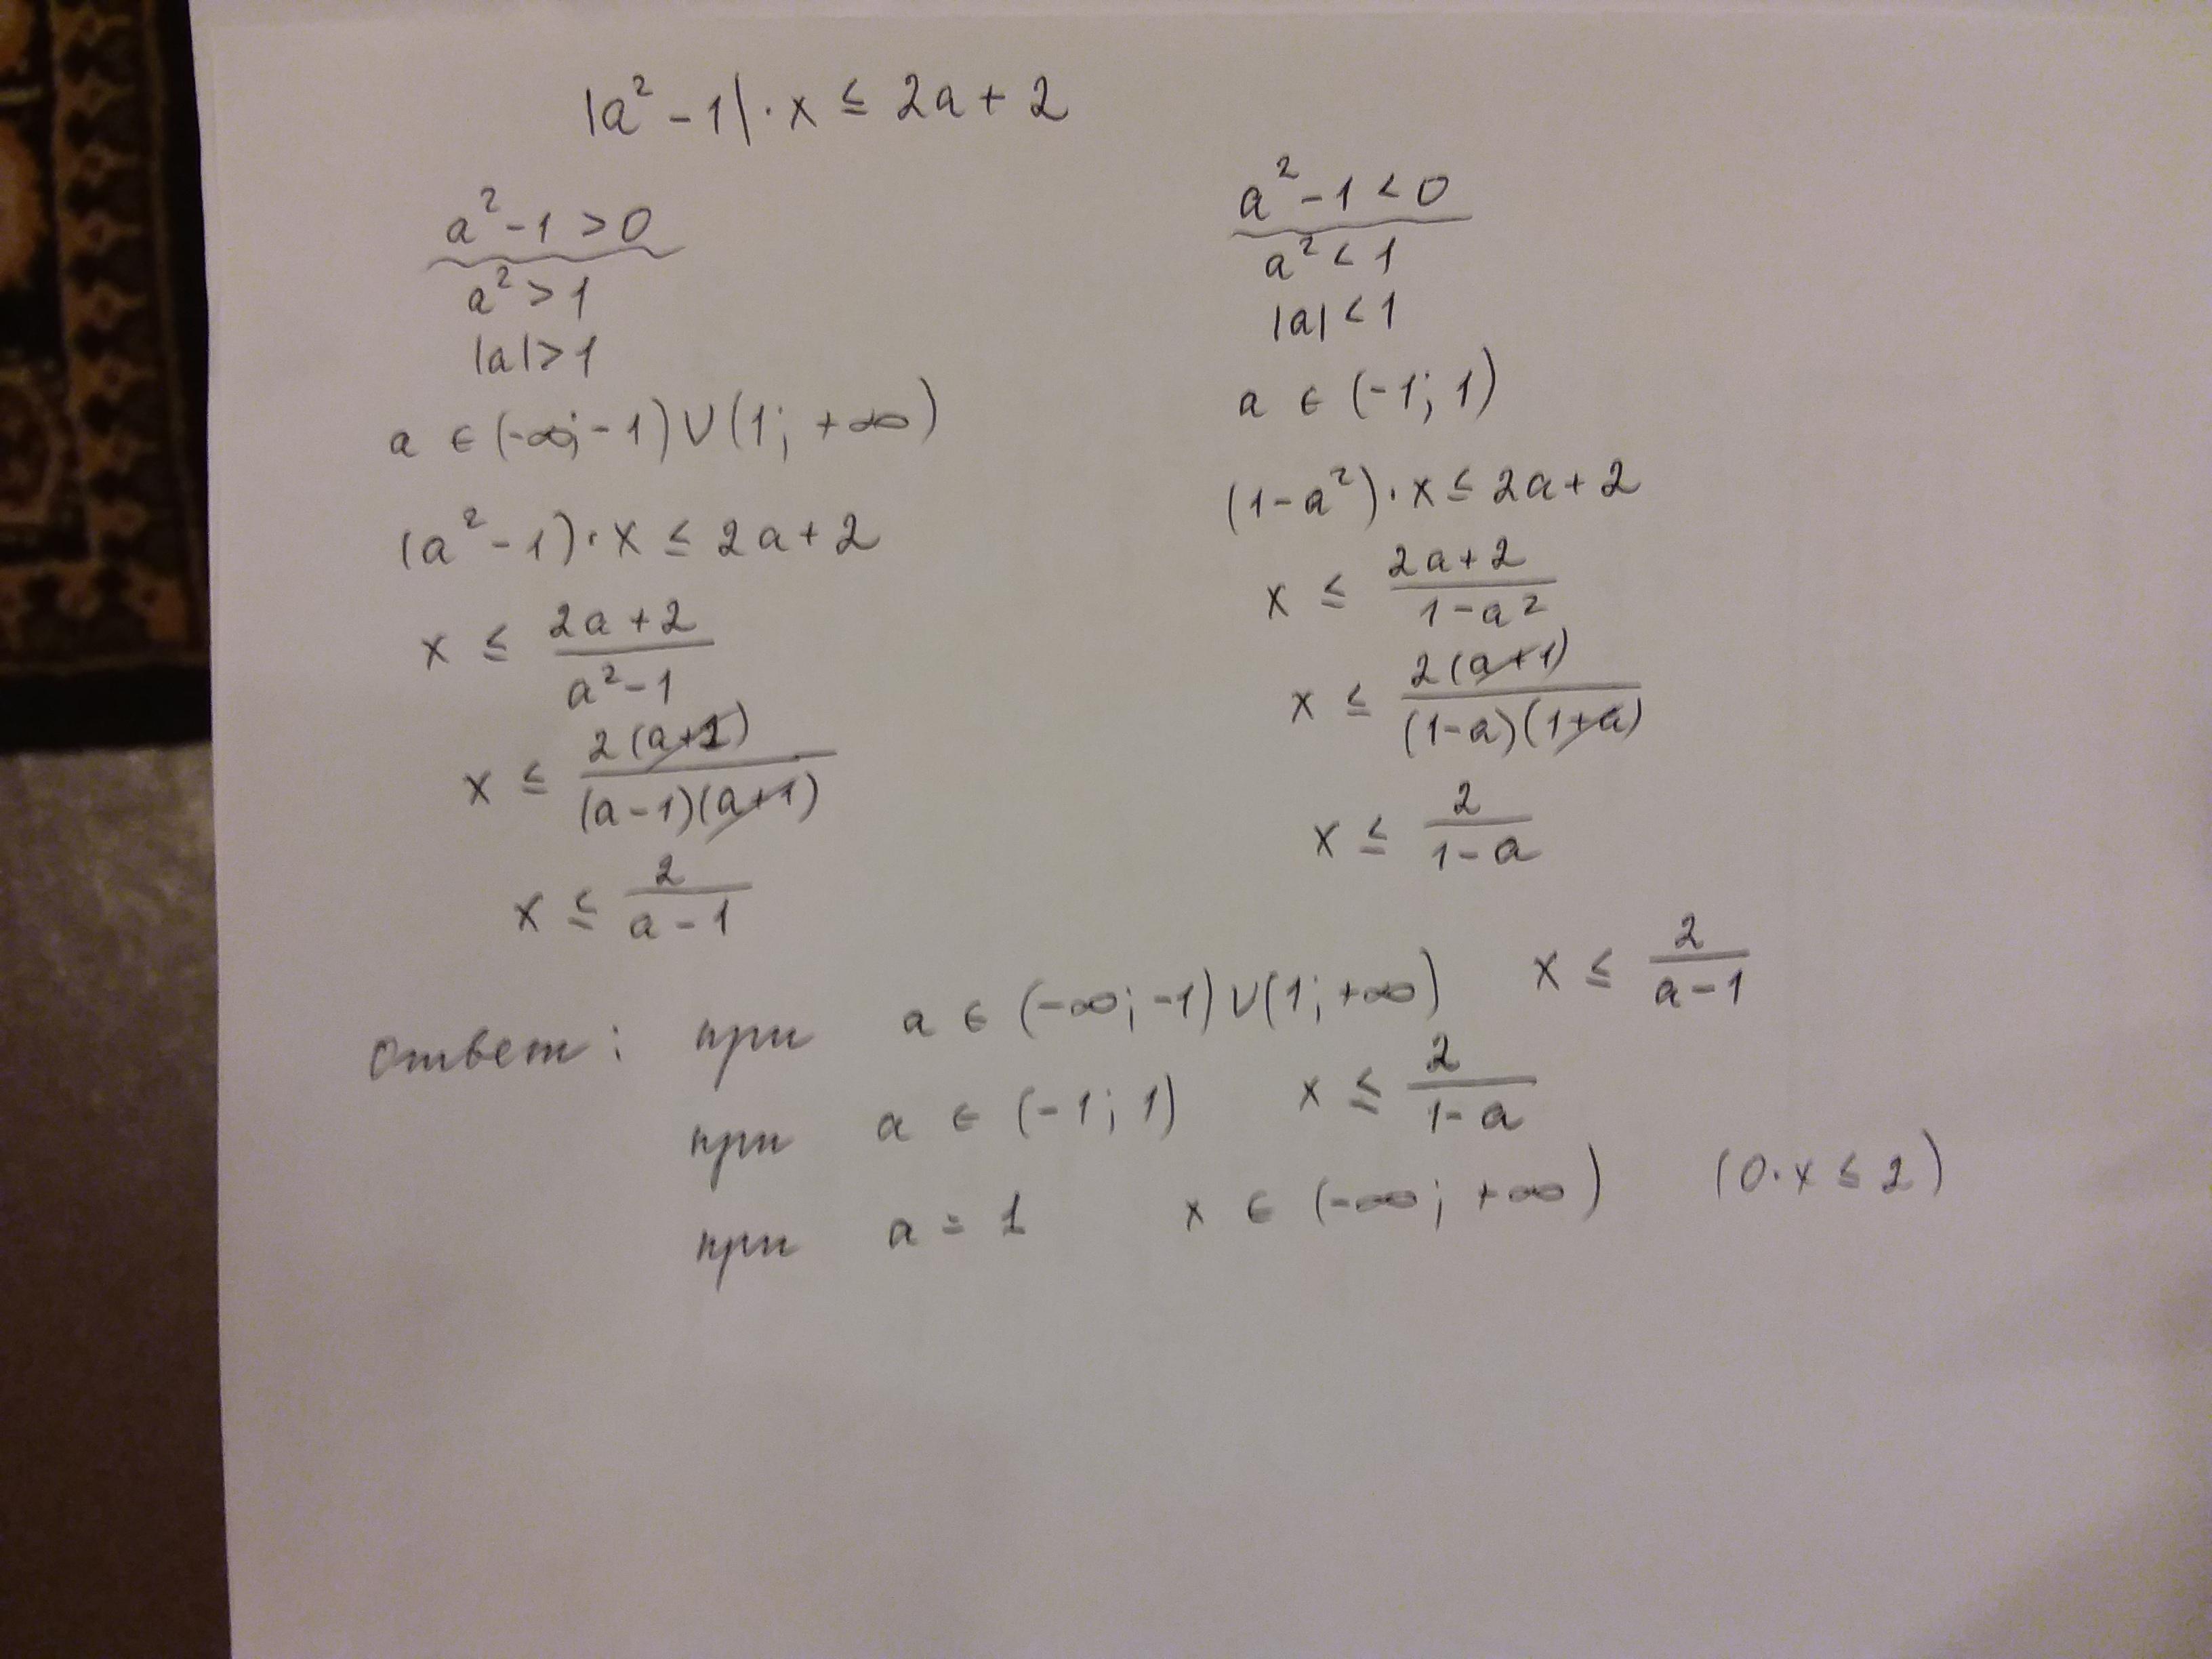 |a² - 1| · x ≤ 2a + 2
a² - 1 > 0
a² > 1
|a| > 1
a ∈ (-∞; -1) ∪ (1; +∞)
(a² - 1) · x ≤ 2a + 2
x ≤ (2a + 2)/(a² - 1)
x ≤ 2(a+1)/((a-1)(a+1))
x ≤ 2/(a - 1)
a² - 1 < 0
a² < 1
|a| < 1
a ∈ (-1; 1)
(1 - a²) · x ≤ 2a + 2
x ≤ (2a + 2)/(1 - a²)
x ≤ 2(a+1)/((1-a)(1+a))
x ≤ 2/(1 - a)
Ответ: при a ∈ (-∞; -1) ∪ (1; +∞) x ≤ 2/(a - 1)
при a ∈ (-1; 1) x ≤ 2/(1 - a)
при a = 1 x ∈ (-∞; +∞) (0 · x ≤ 2)